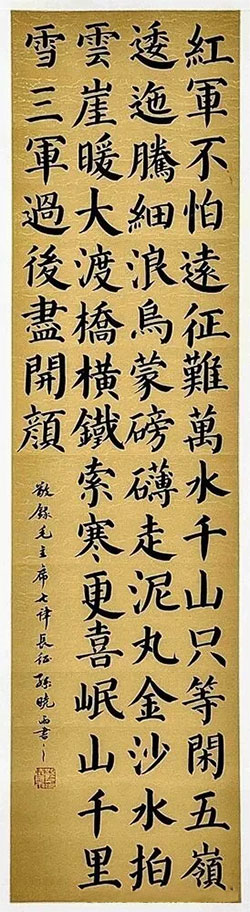 紅軍不怕遠征難萬水千山只等閑五嶺
逶迤騰細浪烏蒙磅礴走泥丸金沙水拍
雲崖暖大渡橋橫鐵索寒更喜岷山千里
雪三軍過後盡開顏
敬錄毛主席七律長征